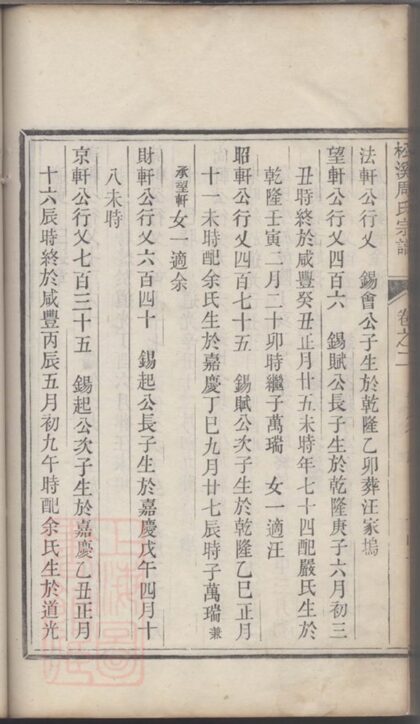 松溪周氏宗譜
卷之二
法軒公行乂　錫會公子生於乾隆乙卯葬汪家塢
望軒公行乂四百六　錫賦公長子生於乾隆庚子六月初三
丑時終於咸豐癸丑正月廿五未時年七十四配嚴氏生於
乾隆壬寅二月二十卯時繼子萬瑞　女一適汪
昭軒公行乂四百七十五　錫賦公次子生於乾隆乙巳正月
十一未時配余氏生於嘉慶丁巳九月廿七辰時子萬瑞兼
承望軒女一適余
財軒公行乂六百四十　錫起公長子生於嘉慶戊午四月十
八未時
京軒公行乂七百三十五　錫起公次子生於嘉慶乙丑正月
十六辰時終於咸豐丙辰五月初九午時配余氏生於道光